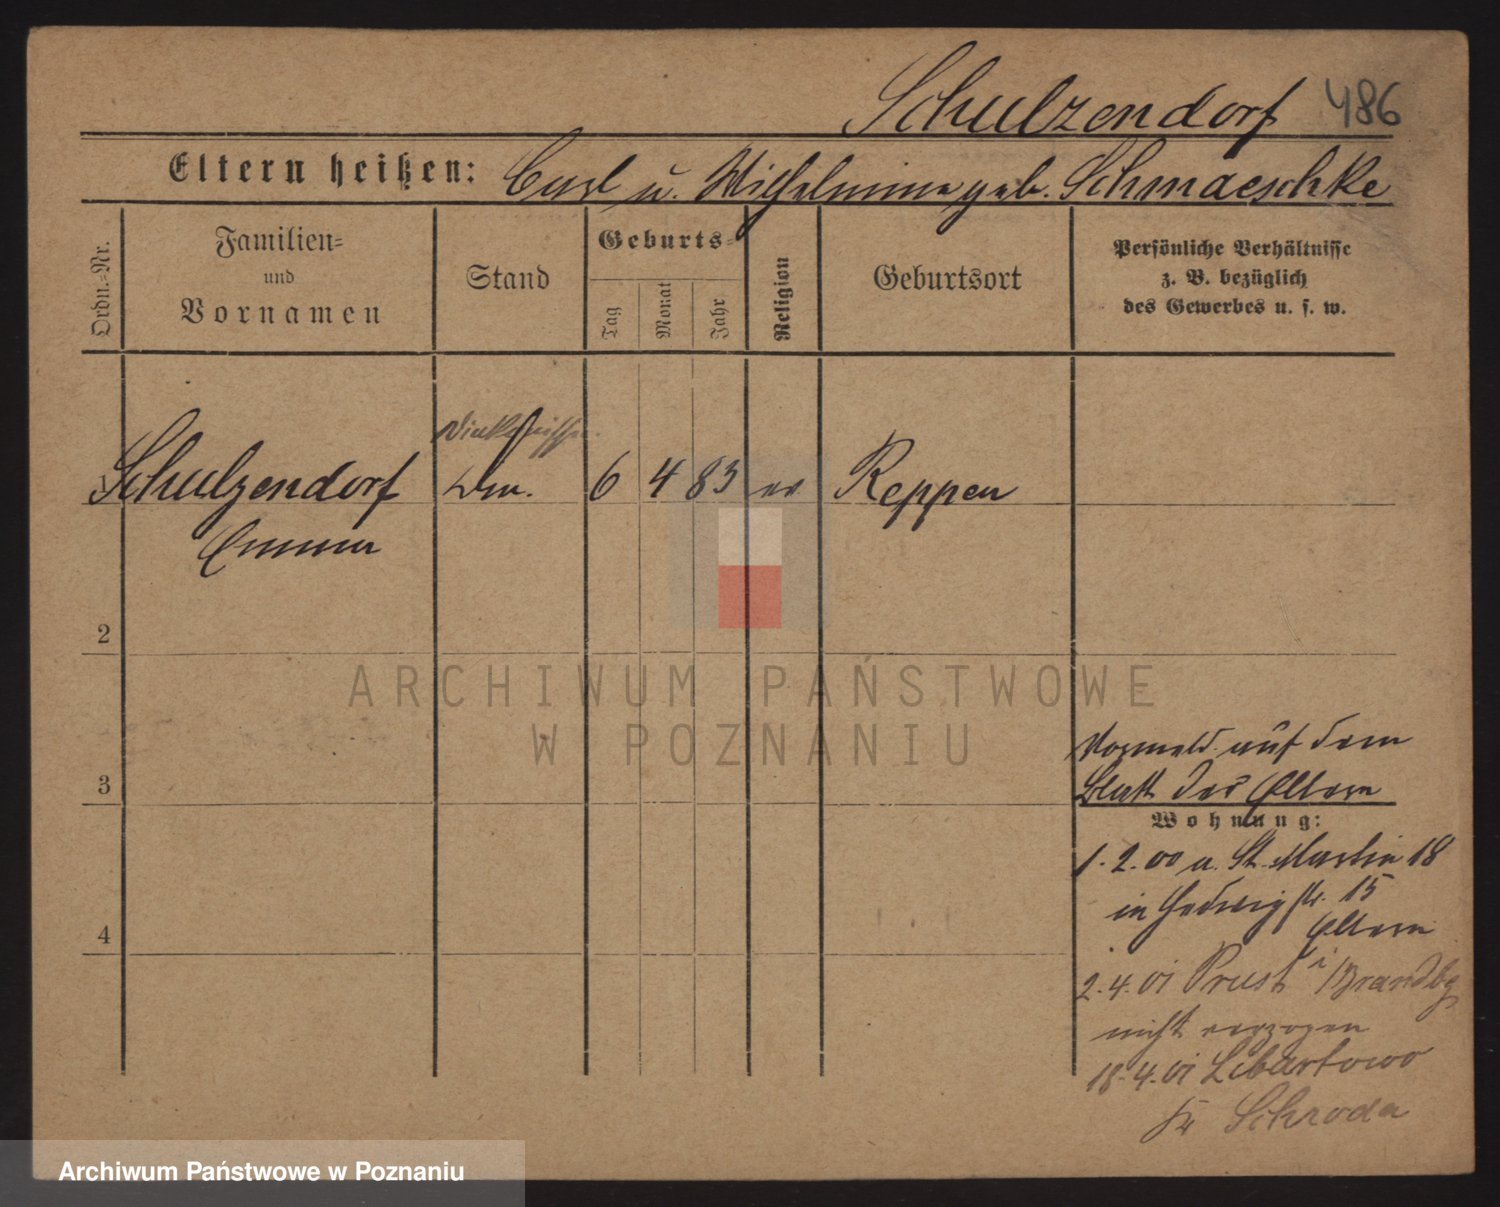 Schulzendorf 486
Eltern heißen: Carl u. Wilhelmine geb. Schmaeschke
Ordn.-Nr.
Familien-
und
Vornamen
Stand
Geburts-
Tag
Monat
Jahr
Religion
Geburtsort
Persönliche Verhältnisse
z. B. bezüglich
des Gewerbes u. s. w.
Schulzendorf 6 4 83 ev Reppen
Emma
2
3
4
auf dem
Blatt der Eltern
Wohnung:
1.2.00 a. St. Martin 18
in Hedwigstr. 15
Eltern
2.4.01 Prust i Brandbg
nicht verzogen
18.4.01 Libartowo
Kr Schroda
ARCHIWUM PAŃSTWOWE
W POZNANIU
Archiwum Państwowe w Poznaniu